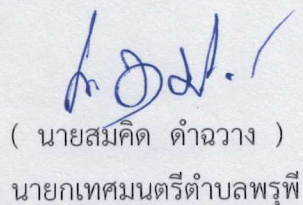 ( นายสมคิด ดำฉวาง )
นายกเทศมนตรีตำบลพรุพี